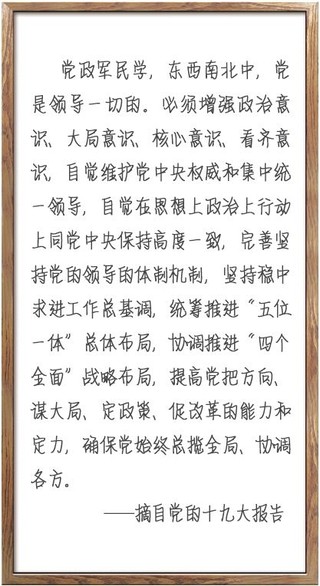 党政军民学，东西南北中，党
是领导一切的。必须增强政治意
识、大局意识、核心意识、看齐意
识，自觉维护党中央权威和集中统
一领导，自觉在思想上政治上行动
上同党中央保持高度一致，完善坚
持党的领导的体制机制，坚持稳中
求进工作总基调，统筹推进“五位
一体”总体布局，协调推进“四个
全面”战略布局，提高党把方向、
谋大局、定政策、促改革的能力和
定力，确保党始终总揽全局、协调
各方。
——摘自党的十九大报告